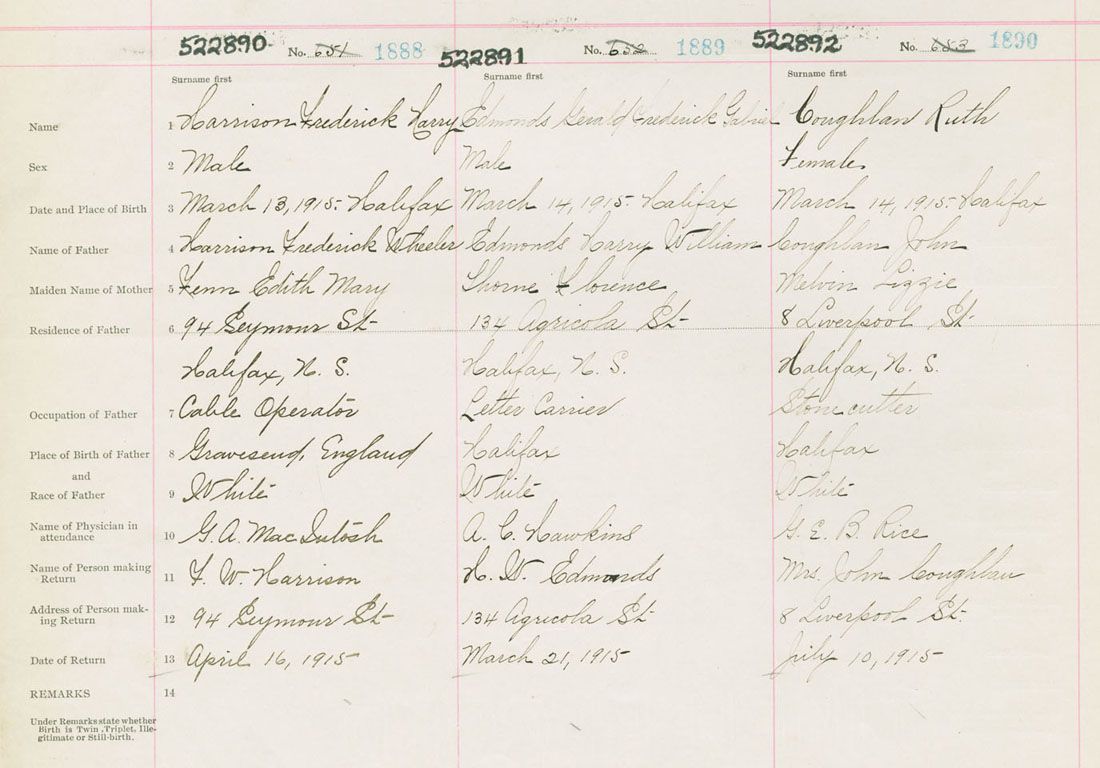 522890 No. 651 1888 522891 No. 652 1889 522892 No. 653 1890
Surname first Surname first Surname first
Name 1 Harrison Frederick Harry Edmonds Gerald Frederick Gabriel Coughlan Ruth
Sex 2 Male Male Female
Date and Place of Birth 3 March 13, 1915 - Halifax March 14, 1915 - Halifax March 14, 1915 - Halifax
Name of Father 4 Harrison Frederick Wheeler Edmonds Harry William Coughlan John
Maiden Name of Mother 5 Fenn Edith Mary Thorne Florence Melvin Lizzie
Residence of Father 6 94 Seymour St 134 Agricola St 8 Liverpool St
Halifax, N. S. Halifax, N. S. Halifax, N. S.
Occupation of Father 7 Cable Operator Letter Carrier Stone cutter
Place of Birth of Father 8 Gravesend, England Halifax Halifax
and
Race of Father 9 White White White
Name of Physician in
attendance 10 G. A. MacIntosh A. C. Hawkins G. E. B. Rice
Name of Person making
Return 11 F. W. Harrison H. W. Edmonds Mrs. John Coughlan
Address of Person mak-
ing Return 12 94 Seymour St 134 Agricola St 8 Liverpool St.
Date of Return 13 April 16, 1915 March 21, 1915 July 10, 1915
REMARKS 14
Under Remarks state whether
Birth is Twin, Triplet, Ille-
gitimate or Still-birth.